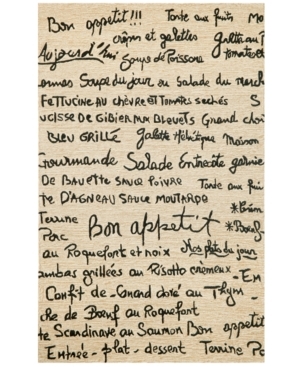 Bon appetit!!! Tarte aux fruits Mo
crèm et galettes Galette au F
Aujourd'hui Soupe de Poissons tomates et
ommes Soupe du jour ou Salade du march
FETTUCINE AU CHÈVRE ET TOMATES SECHÉS S
UCISSE DE GIBIER AUX AIRELLETS Grand choi
BLEU GRILLÉ Galette Helvétique Maison
Gourmande Salade Entrecote garnie
DE BAVETTE SAUCE POIVRE Tarte aux frui
TE D'AGNEAU SAUCE MOUTARDE *Crèm
Terrine Bon appetit *Boeuf
Porc
au Roquefort et noix Nos plats du jour
ambas grillées au Risotto cremeux - EN
Confit de Canard doré au Thym -
che de Bœuf au Roquefort
te Scandinave au Saumon Bon appetit
Entrée - plat - dessent Terrine Po